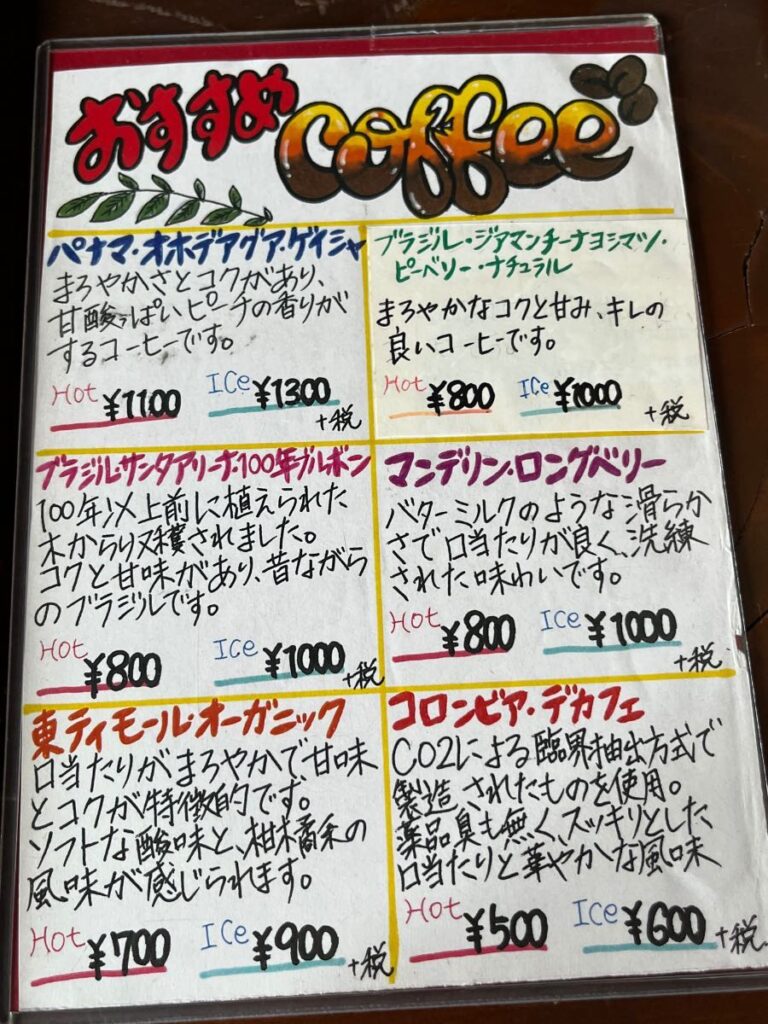 おすすめ coffee
パナマ・オホデアグア・ゲイシャ
まろやかさとコクがあり、
甘酸っぱいピーチの香りが
するコーヒーです。
Hot ¥1100 ICe ¥1300
+税
ブラジル・ジアマンチーナヨシマツ・
ピーベリー・ナチュラル
まろやかなコクと甘み、キレの
良いコーヒーです。
Hot ¥800 ICe ¥1000
+税
ブラジル・サンタアリーナ・100年ブルボン
100年以上前に植えられた
木から収穫されました。
コクと甘味があり、昔ながら
のブラジルです。
Hot ¥800 ICe ¥1000
+税
マンデリン・ロングベリー
バターミルクのような滑らか
さで口当たりが良く、洗練
された味わいです。
Hot ¥800 ICe ¥1000
+税
東ティモール・オーガニック
口当たりがまろやかで甘味
とコクが特徴的です。
ソフトな酸味と、柑橘系の
風味が感じられます。
Hot ¥700 ICe ¥900
+税
コロンビア・デカフェ
CO2による臨界抽出方式で
製造されたものを使用。
薬品臭も無く、スッキリとした
口当たりと華やかな風味
Hot ¥500 ICe ¥600
+税